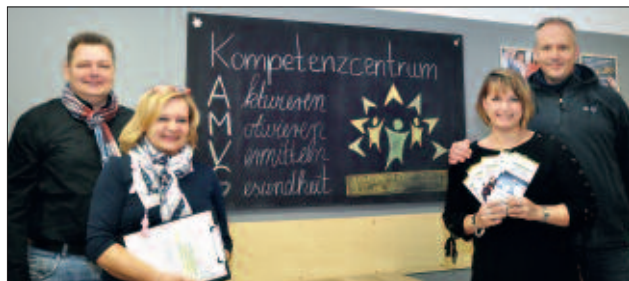 Kompetenzcentrum
Aktivieren
Motivieren
Vermitteln
Gesundheit